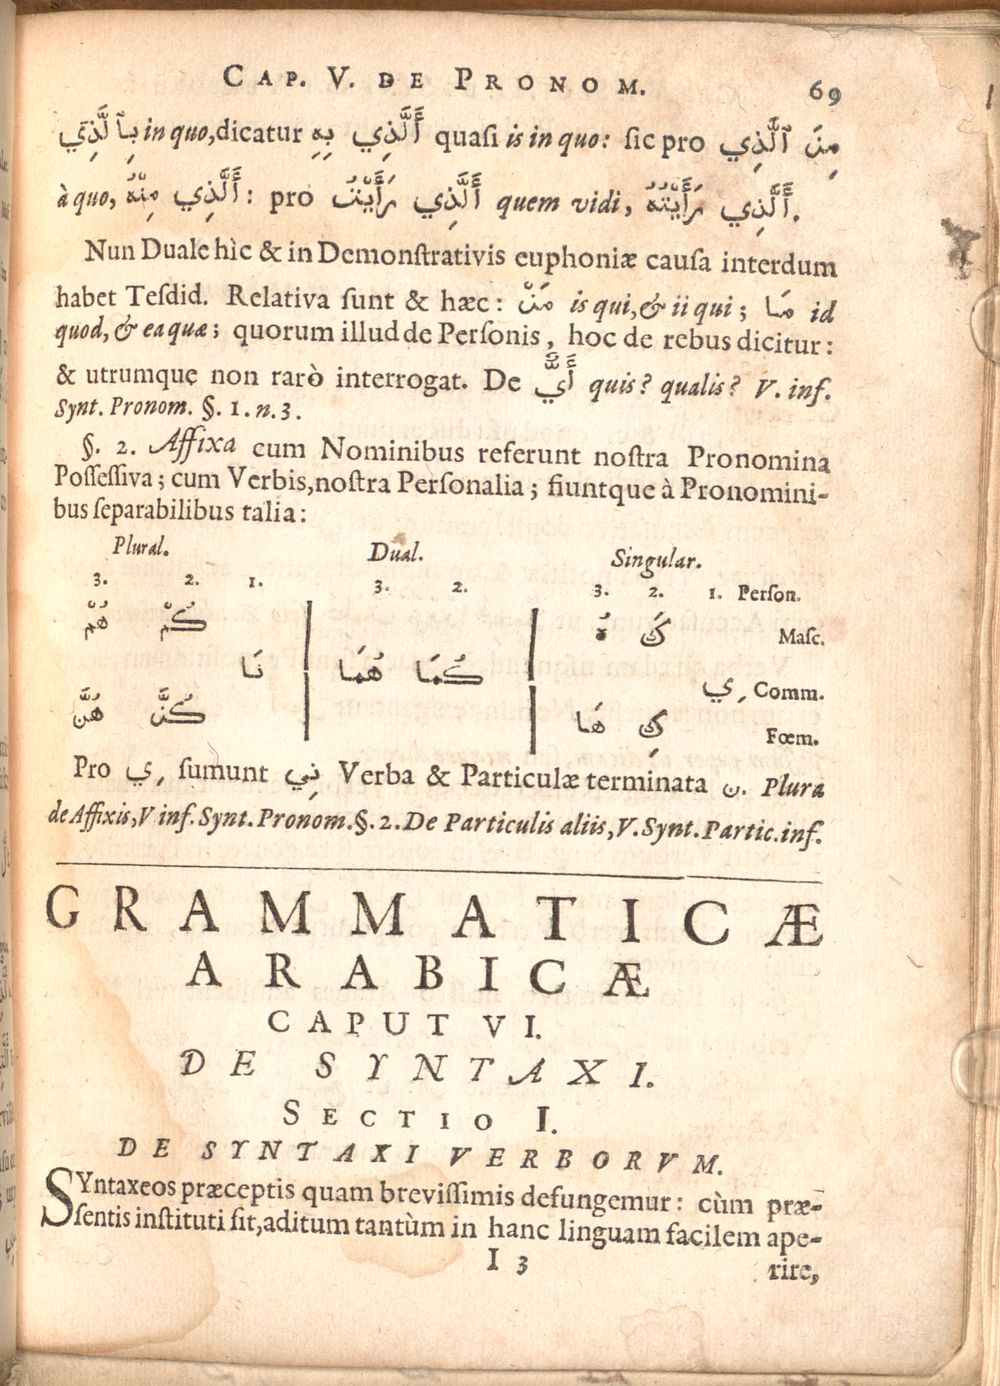 CAP. V. DE PRONOM. 69
بِٱلَّذِي in quo, dicatur أَلَّذِي بِهِ quasi is in quo: sic pro مِنَ ٱلَّذِي
à quo, أَلَّذِي مِنْهُ: pro أَلَّذِي رَأَيْتُ quem vidi, أَلَّذِي رَأَيْتُهُ.
Nun Duale hìc & in Demonſtrativis euphoniæ cauſa interdum
habet Teſdid. Relativa ſunt & hæc: مَنْ is qui, & ii qui; مَا id
quod, & ea quæ; quorum illud de Perſonis, hoc de rebus dicitur:
& utrumque non rarò interrogat. De أَيٌّ quis? qualis? V. inf.
Synt. Pronom. §. 1. n. 3.
§. 2. Affixa cum Nominibus referunt noſtra Pronomina
Poſſeſſiva; cum Verbis, noſtra Perſonalia; fiuntque à Pronomini-
bus ſeparabilibus talia:
Plural. Dual. Singular.
3. 2. 1. 3. 2. 3. 2. 1. Perſon.
هُمْ كُمْ هُ كَ Maſc.
نَا هُمَا كُمَا ِي Comm.
هُنَّ كُنَّ هَا كِ Fœm.
Pro ِي ſumunt نِي Verba & Particulæ terminata ن. Plura
de Affixis, V inf. Synt. Pronom. §. 2. De Particulis aliis, V. Synt. Partic. inf.
GRAMMATICÆ
ARABICÆ
CAPUT VI.
DE SYNTAXI.
SECTIO I.
DE SYNTAXI VERBORVM.
SYntaxeos præceptis quam breviſſimis defungemur: cùm præ-
ſentis inſtituti ſit, aditum tantùm in hanc linguam facilem ape-
I 3 rire,